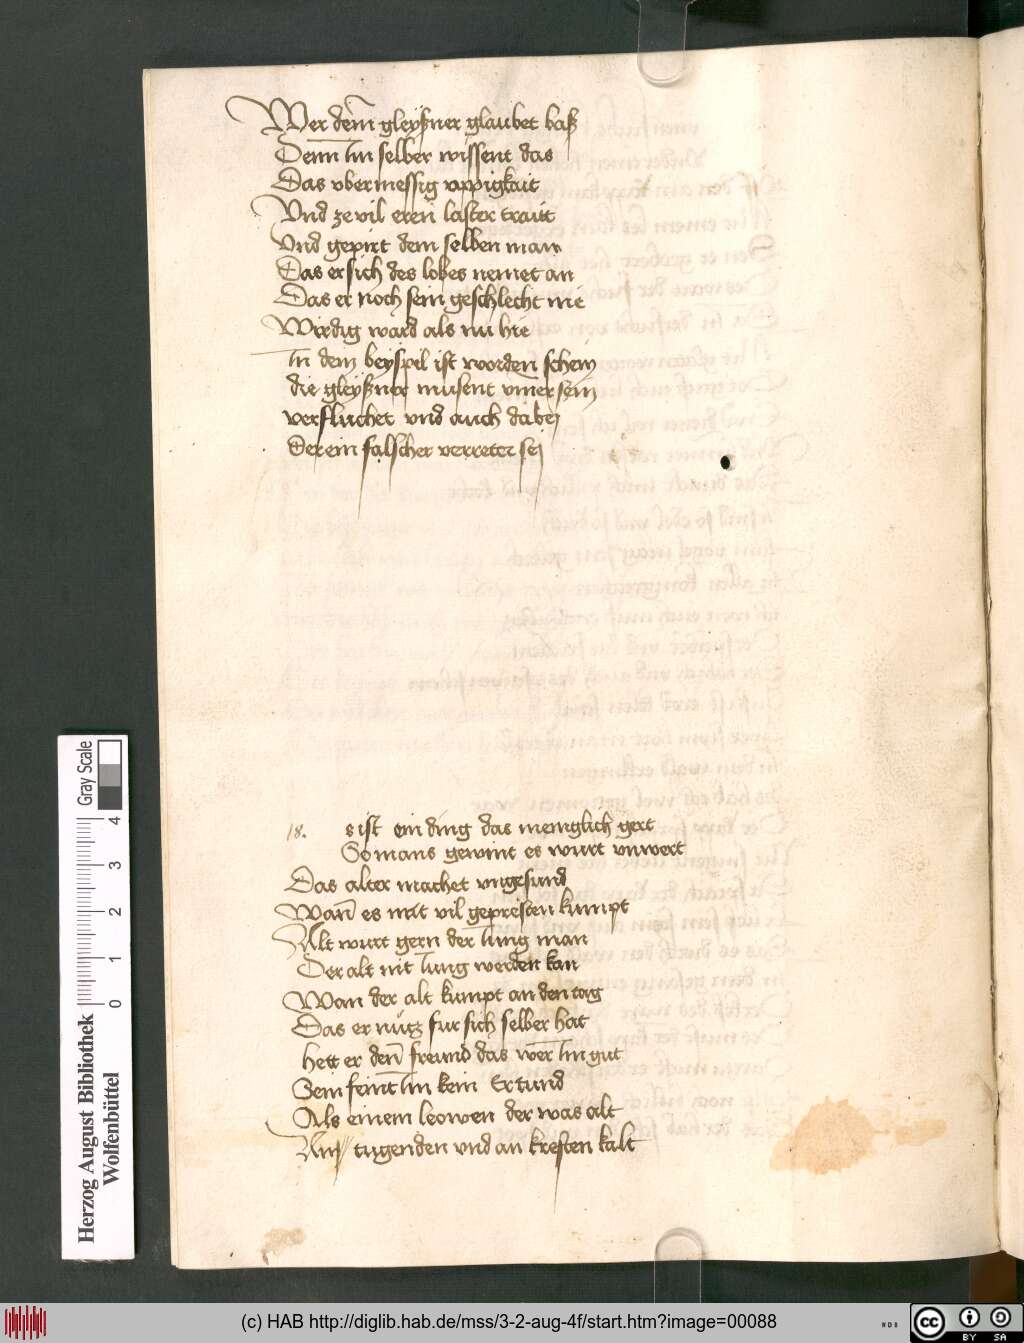 Wer dem gleyßner glaubet baß
Denn im selber wissent das
Das vbermessig vppigkait
Vnd ze vil eren laster trait
Vnd gepirt dem selben man
Das er sich des lobes nemet an
Das er noch sein geschlecht nie
Wirdig ward als nu hie
In dem beyspil ist worden schein
die gleyßner musent vmer sein
verfluchet vnd auch dabei
Der ein falscher verreter sei
18. s ist ein ding das meniglich gert
So mans gewint es wurt vnwert
Das alter machet vngesund
Wan̄ es mit vil gepresten kumpt
Alt wurt gern der iung man
Der alt nit iung werden kan
Wan der alt kumpt an den tag
Das er nütz fur sich selber hat
hett er den̄ freund das wer im gut
Sem feint im kein Er tund
Als einem leowen der was alt
An tugenden vnd an kreften kalt
Herzog August Bibliothek
Wolfenbüttel
Gray Scale
0 1 2 3 4
(c) HAB http://diglib.hab.de/mss/3-2-aug-4f/start.htm?image=00088
WDB
CC BY SA